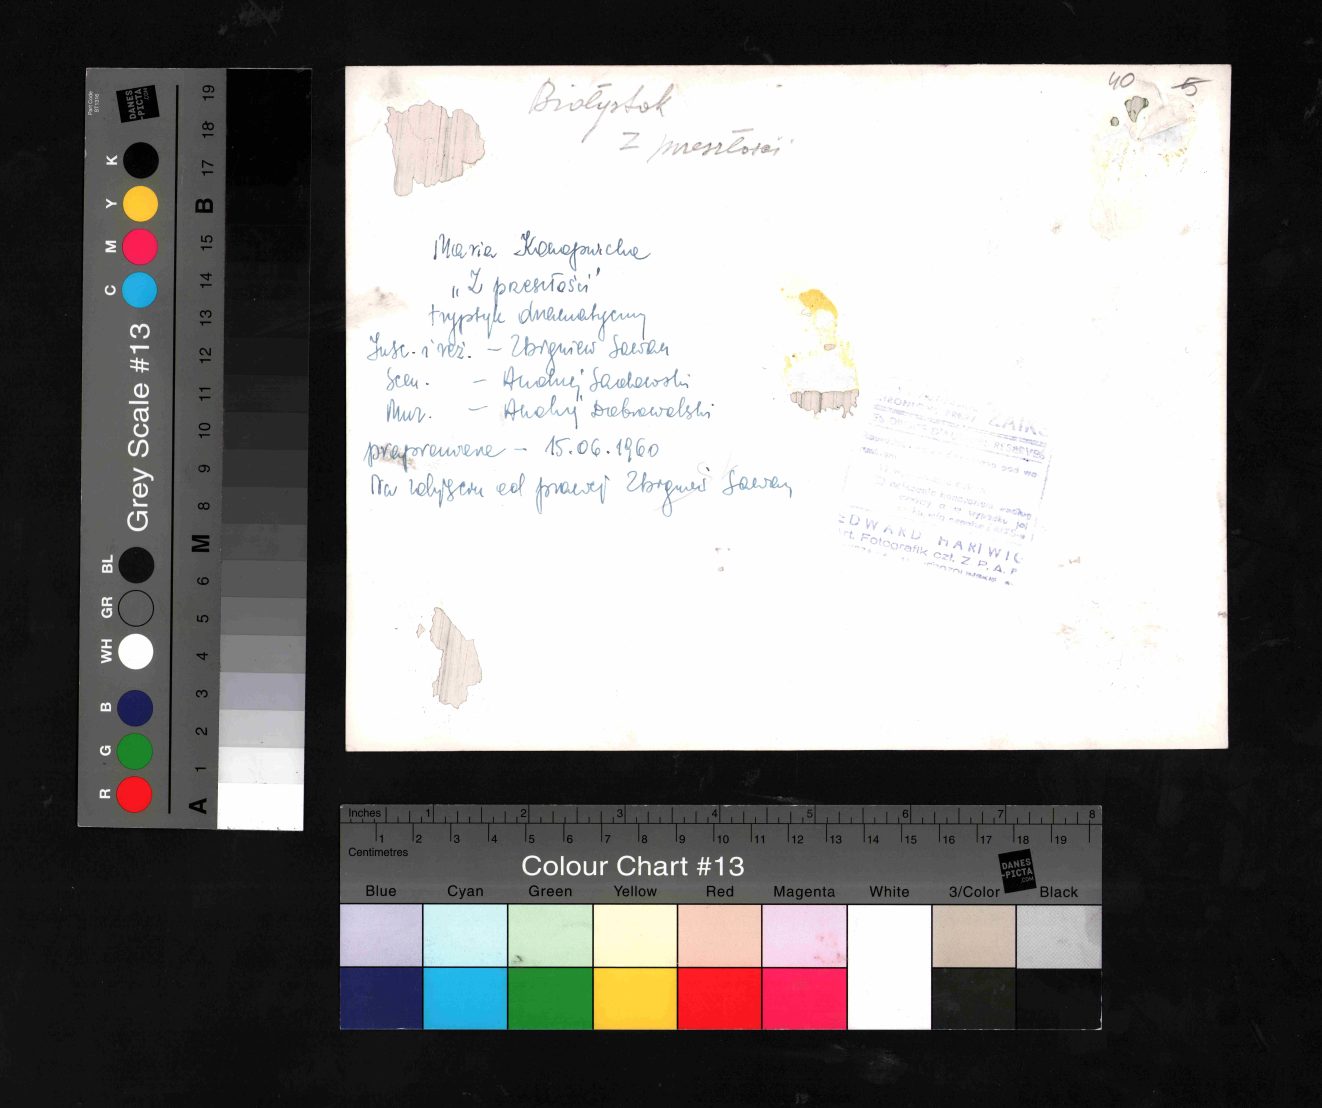 Białystok
Z przeszłości
40 5
Maria Konopnicka
„Z przeszłości"
tryptyk dramatyczny
Insc. i reż. – Zbigniew Sawan
Scen. – Andrzej Sadowski
Muz. – Andrzej Dobrowolski
prapremiera – 15.06.1960
Na zdjęciu od prawej Zbigniew Sawan
EDWARD HARTWIG
art. Fotografik czł. Z. P. A. F
DANES
-PICTA
.COM
Grey Scale #13
K Y M C
BL GR WH
B G R
A 1 2 3 4 5 6 M 8 9 10 11 12 13 14 15 B 17 18 19
Inches 1 2 3 4 5 6 7 8
1 2 3 4 5 6 7 8 9 10 11 12 13 14 15 16 17 18 19
Centimetres
Colour Chart #13
DANES
-PICTA
.COM
Blue Cyan Green Yellow Red Magenta White 3/Color Black